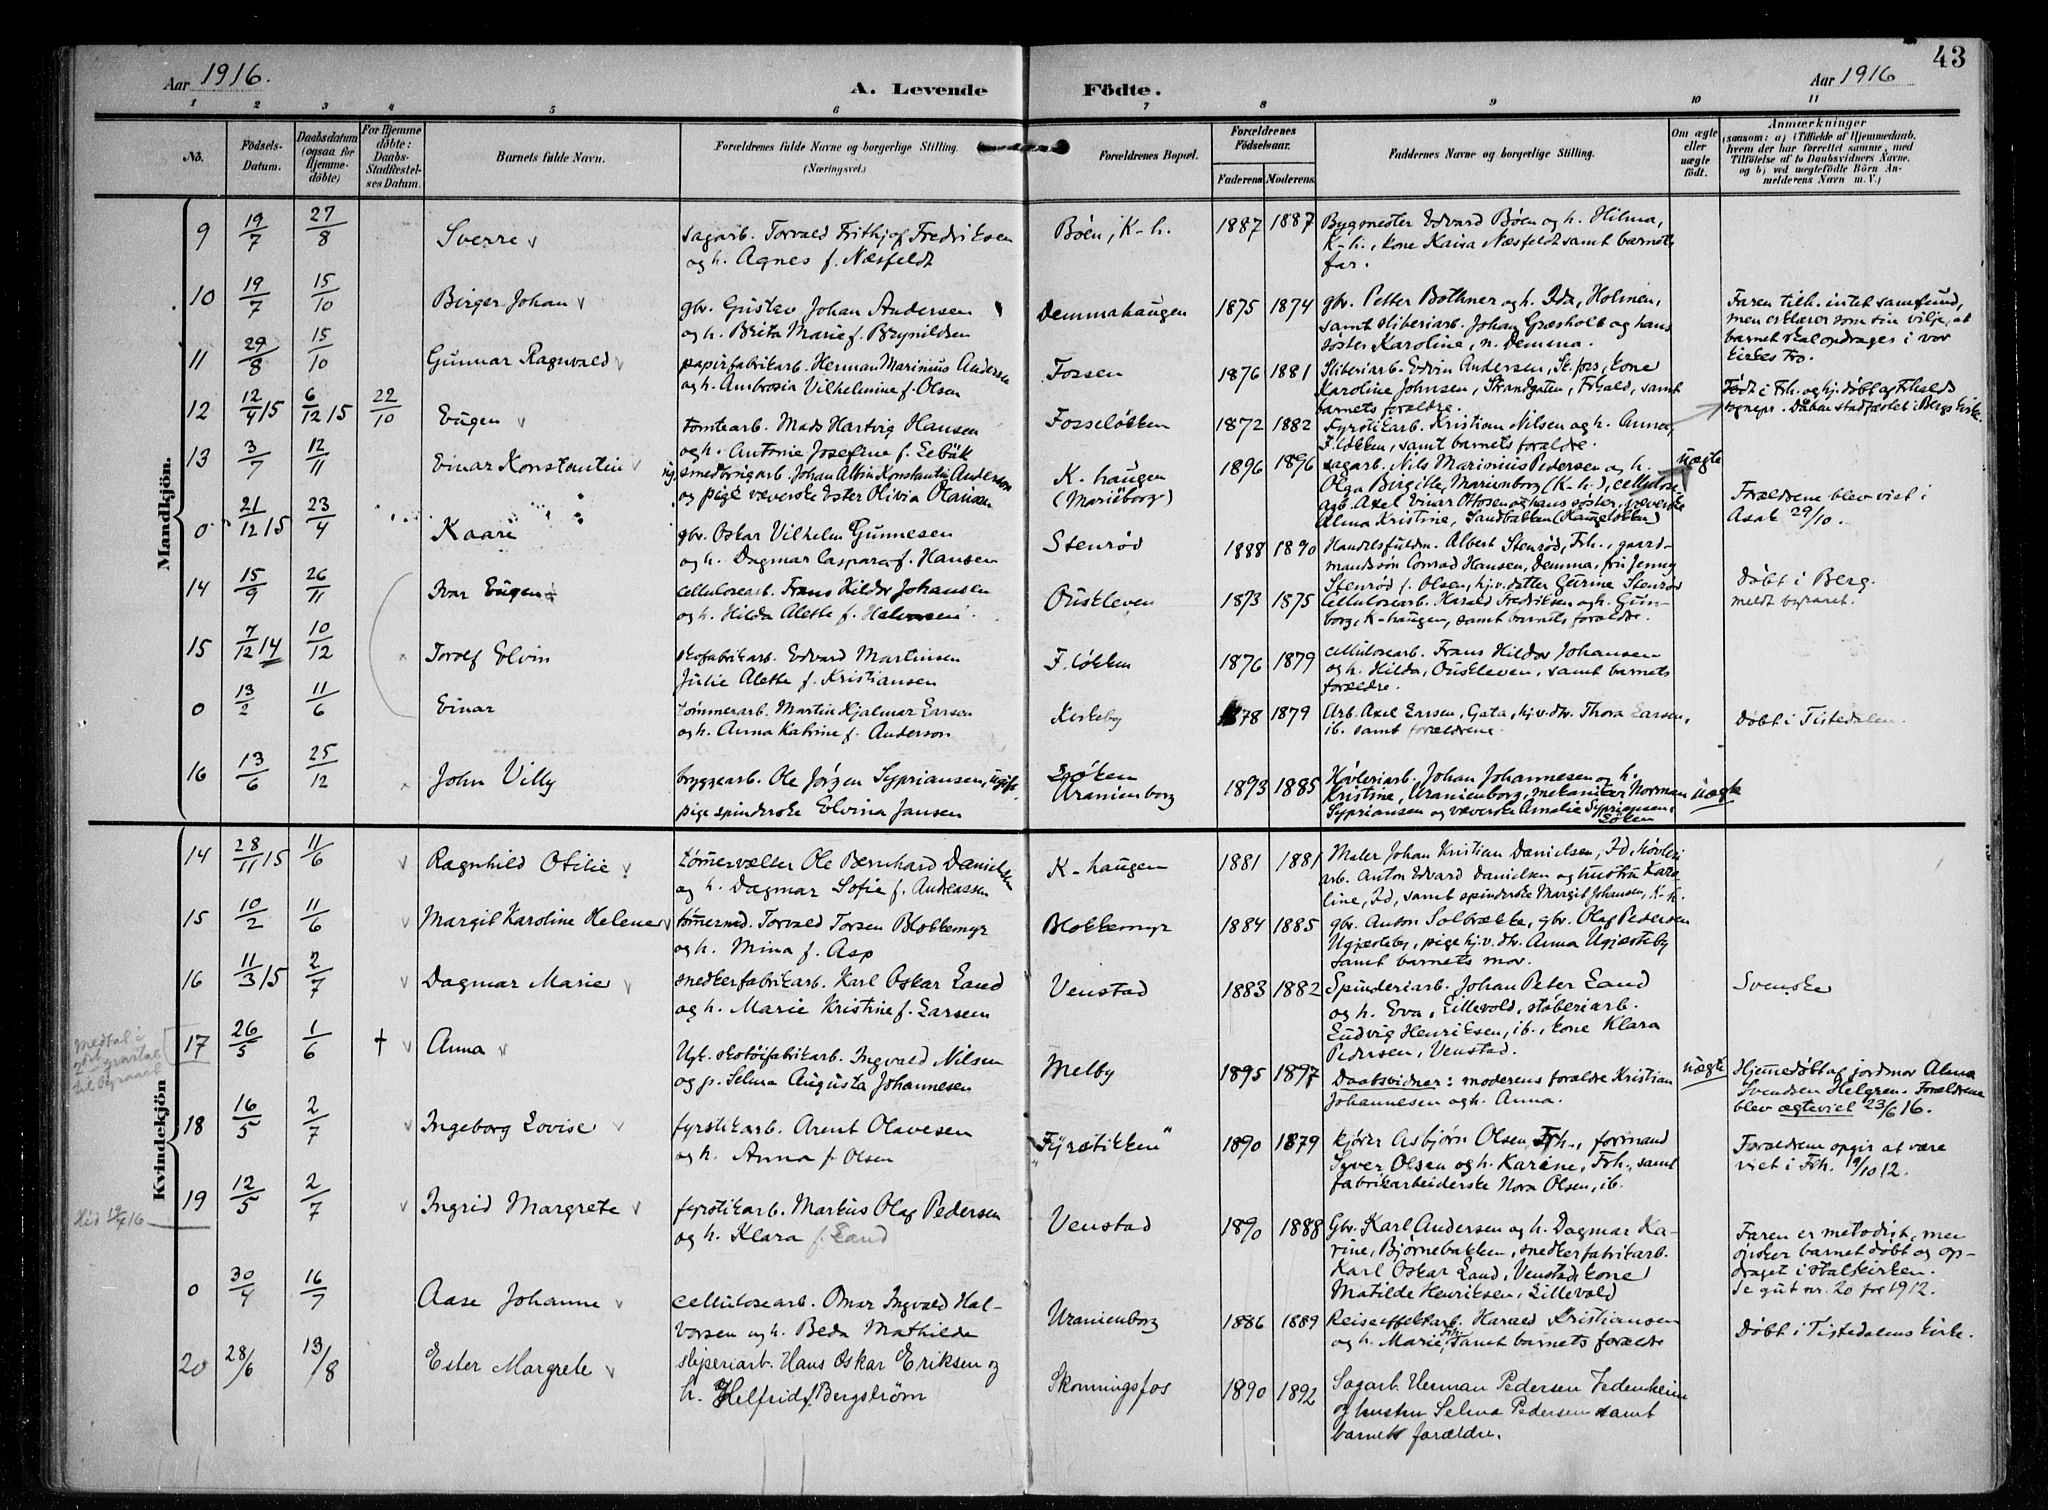 43
Aar 1916.
A. Levende Födte.
Aar 1916
1 2 3 4 5 6 7 8 9 10 11
No.
Födsels-Datum.
Daabsdatum (ogsaa for Hjemme-döbte)
For Hjemme döbte: Daabs-Stadfæstel-ses Datum.
Barnets fulde Navn.
Forældrenes fulde Navne og borgerlige Stilling.
(Næringsvei.)
Forældrenes Bopæl.
Forældrenes Födselsaar.
Faderens. Moderens.
Faddernes Navne og borgerlige Stilling.
Om ægte eller uægte födt.
Anmærkninger
(saasom: a) i Tilfælde af Hjemmedaab,
hvem der har forrettet samme, med
Tilföielse af to Daabsvidners Navne.
og b) ved uægtefödte Börn An-
melderens Navn m. V.)
Mandkjön.
9 19/7 27/8 Sverre
sagarb. Torvald Frithjof Fredriksen
og h. Agnes f. Næsfeldt
Böen, K-h. 1887 1887
Bygmester Edvard Böen og h. Hilma,
K-h., kone Kaisa Næsfeldt samt barnets
far.
10 19/7 15/10 Birger Johan
gbr. Gustav Johan Andersen
og h. Brita Marie f. Brynildsen
Demmahaugen 1875 1874
gbr. Petter Bothner og h. Ida, Holmen,
samt sliberiarb. Johan Græsholt og hans
søster Karoline, n. Demma.
Faren tilh. intet samfund,
men erklærer som sin vilje, at
barnet skal opdrages i vor
kirkes tro.
11 29/8 15/10 Gunnar Ragnvald
papirfabrikarb. Herman Marinius Andersen
og h. Ambrosia Vilhelmine f. Olsen
Fossen 1876 1881
Sliberiarb. Edvin Andersen, Sk.foss, kone
Karoline Johnsen, Strandgaten, Frhald, samt
barnets forældre.
12 12/4 15 6/12 15 22/10 Eugen
tomtearb. Mads Hartvig Hansen
og h. Antonie Josefine f. Lebük
Fosseløkken 1872 1882
Fyrstikarb. Kristian Nilsen og h. Anna,
F.løkken, samt barnets forældre.
Født i Frh. og hj.døbt af Frhalds
sognepr. Dåben stadfæstet i Bergs kirke.
13 3/7 12/11 Einar Konstantin
smedbrigarb. Johan Albin Konstantin Anderson
og pige væverske Ester Olivia Olausen
K-haugen
(Mariëborg) 1896 1896
sagarb. Nils Marinius Pedersen og h.
Olga Birgitte, Marienborg (K-h.), cellulose-
arb. Axel Einar Ottosen og hans søster, væverske
Alma Kristine, Sandbakken (Haugeløkken)
uægte
Forældrene blev viet i
Asak 29/10.
0 21/12 15 23/4 Kaare
gbr. Oskar Vilhelm Gunnesen
og h. Dagmar Caspara f. Hansen
Stenrød 1888 1890
Handelsfuldm. Albert Stenrød, Frh., gaard-
mandssøn Conrad Hansen, Demma, fru Jenny
Stenrød f. Olsen, hj.v. datter Gurine Stenrød
Døbt i Berg.
meldt byraaet.
14 15/9 26/11 Ivar Eugen
cellulosearb. Frans Hildor Johansen
og h. Hilda Alette f. Halvorsen
Oustleven 1873 1875
Cellulosearb. Harald Fredriksen og h. Gun-
borg, K-haugen, samt barnets forældre.
15 7/12 14 10/12 Torolf Elvin
skofabrikarb. Edvard Martinsen
Julie Alette f. Kristiansen
F.løkken 1876 1879
cellulosearb. Frans Hildor Johansen
og h. Hilda, Oustleven, samt barnets
forældre.
0 13/2 11/6 Einar
tømmerarb. Martin Hjalmar Larsen
og h. Anna Katrine f. Anderson
Kirkeby 1878 1879
Arb. Axel Larsen, Gata, hj.v.dtr. Thora Larsen,
ib. samt forældrene.
Døbt i Tistedalen.
16 13/6 25/12 John Villy
bryggearb. Ole Jörgen Sypriansen, ugift,
pige spinderske Elvina Jansen
Løken
Uranienborg 1893 1885
Høvleriarb. Johan Johannesen og h.
Kristine, Uranienborg, mekaniker Norman
Sypriansen og væverske Amalie Sypriansen,
Løken
uægte
Kvindekjön
14 28/11 15 11/6 Ragnhild Otilie
tømervælter Ole Bernhard Danielsen
og h. Dagmar Sofie f. Andreassen
K-haugen 1881 1881
Maler Johan Kristian Danielsen, Id, høvleri
arb. Anton Edvard Danielsen og hustru Karo
line, Id, samt spinderske Margit Johansen, K-h.
15 10/2 11/6 Margit Karoline Helene
tømermd. Torvald Torsen Blokkemyr
og h. Mina f. Asp
Blokkemyr 1884 1885
gbr. Anton Solbrække, gbr. Olaf Pedersen
Ugjesteby, pige hj.v.dtr. Anna Ugjesteby
samt barnets mor.
16 11/3 15 2/7 Dagmar Marie
snedkerfabrikarb. Karl Oskar Land
og h. Marie Kristine f. Larsen
Venstad 1883 1882
Spinderiarb. Johan Peter Land
og h. Eva, Lillevold, støberiarb.
Ludvig Henriksen, ib., kone Klara
Pedersen, Venstad.
Svenske
Medtal i
2det kvartal
til Byraaet
17 26/5 1/6 † Anna
Ugk. skotøifabrikarb. Ingvald Nilsen
og p. Selma Augusta Johannesen
Melby 1895 1897
Daabsvidner: moderens forældre Kristian
Johannesen og h. Anna.
uægte
Hjemmedøbt af jordmor Alma
Svendsen Helgren. Forældrene
blev ægteviet 23/6 16.
18 16/5 2/7 Ingeborg Lovise
fyrstikarb. Arent Olavesen
og h. Anna f. Olsen
"Fyrstikken" 1890 1879
Kjører Asbjørn Olsen, Frh., formand
Syver Olsen og h. Karine, Frh., samt
fabrikarbeiderske Nora Olsen, ib.
Forældrene opgir at være
viet i Frh. 9/10 12.
19 12/5 2/7 Ingrid Margrete
fyrstikarb. Markus Olaf Pedersen
og h. Klara f. Land
Hid 19/7 16
Venstad 1890 1888
Gbr. Karl Andersen og h. Dagmar Ka-
rine, Bjørnebakken, snedkerfabrikarb.
Karl Oskar Land, Venstad, kone
Matilde Henriksen, Lillevold
Faren er metodist, men
ønsker barnet døbt og op-
draget i statskirken.
Se gut nr. 20 for 1912.
0 30/4 16/7 Aase Johanne
cellulosearb. Omar Ingvald Hal-
vorsen og h. Beda Mathilde
Uranienborg 1886 1889
Reiseeffektarb. Harald Kristiansen
og h. Marie, Frh. samt barnets forældre
Døbt i Tistedalens kirke.
20 28/6 13/8 Ester Margrete
sliperiarb. Hans Oskar Eriksen og
h. Helfrid f. Bergström
Skonningsfos 1890 1892
Sagarb. Herman Pedersen Jedenheim
og hustru Selma Pedersen samt
barnets forældre.